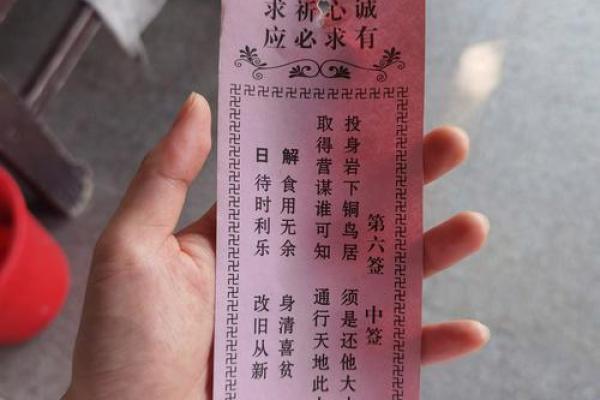 诚心祈求
有求必应
第六签 中签
投身岩下铜鸟居 须是还他大
取得营谋谁可知 通行天地此
解 食用无余 身清喜贫
日 待时利乐 改旧从新